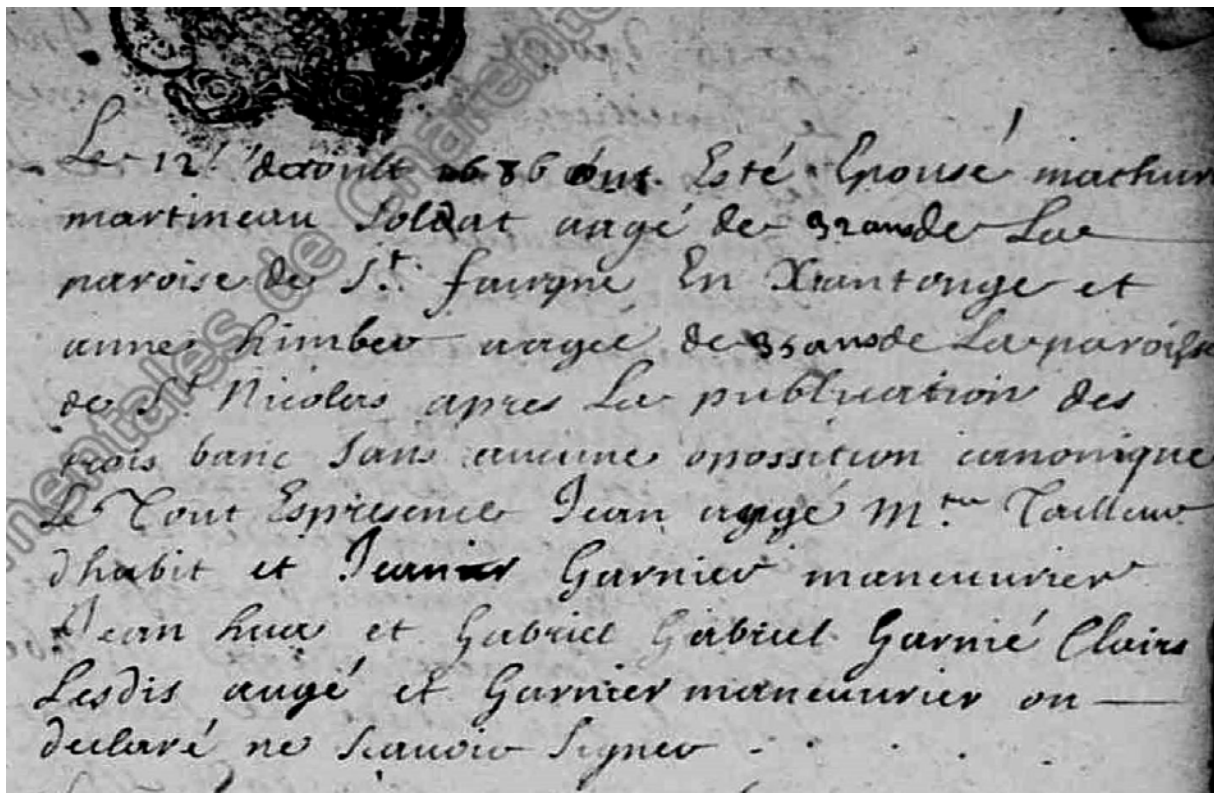 Le 12e daoult 1686 ont Esté Epousé mathur
martineau Soldat aagé de 32 ans de La
paroise de St. faurgne En Xaintonge et
anne himber aagee de 35 ans de La paroisse
de St Nicolas apres La publication des
trois banc Sans aucune oposition canonique
Le Tout Espresence Jean augé Mtre Tailleur
dhabit et Garnier maneuvrier
Jean hua et Gabriel Gabriel Garnié Clairs
Lesdis augé et Garnier maneuvrier on
declaré ne Scavoir Signer
mentales de Charente